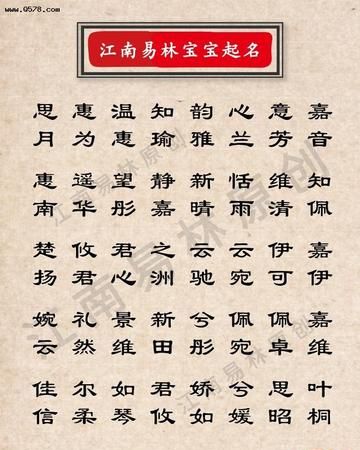 www.Q578.com
江南易林宝宝起名
思 惠 温 知 韵 心 意 嘉
月 为 惠 瑜 雅 兰 芳 音
惠 遥 望 静 新 恬 维 知
南 华 彤 嘉 晴 雨 清 佩
楚 攸 君 之 云 云 伊 嘉
扬 君 心 洲 驰 宛 可 伊
婉 礼 景 新 兮 佩 佩 嘉
云 然 维 田 彤 宛 卓 维
佳 尔 如 君 娇 兮 思 叶
信 柔 琴 攸 如 媛 昭 桐
江南易林原创
江南易林原创
江南易林原创
江南易林原创